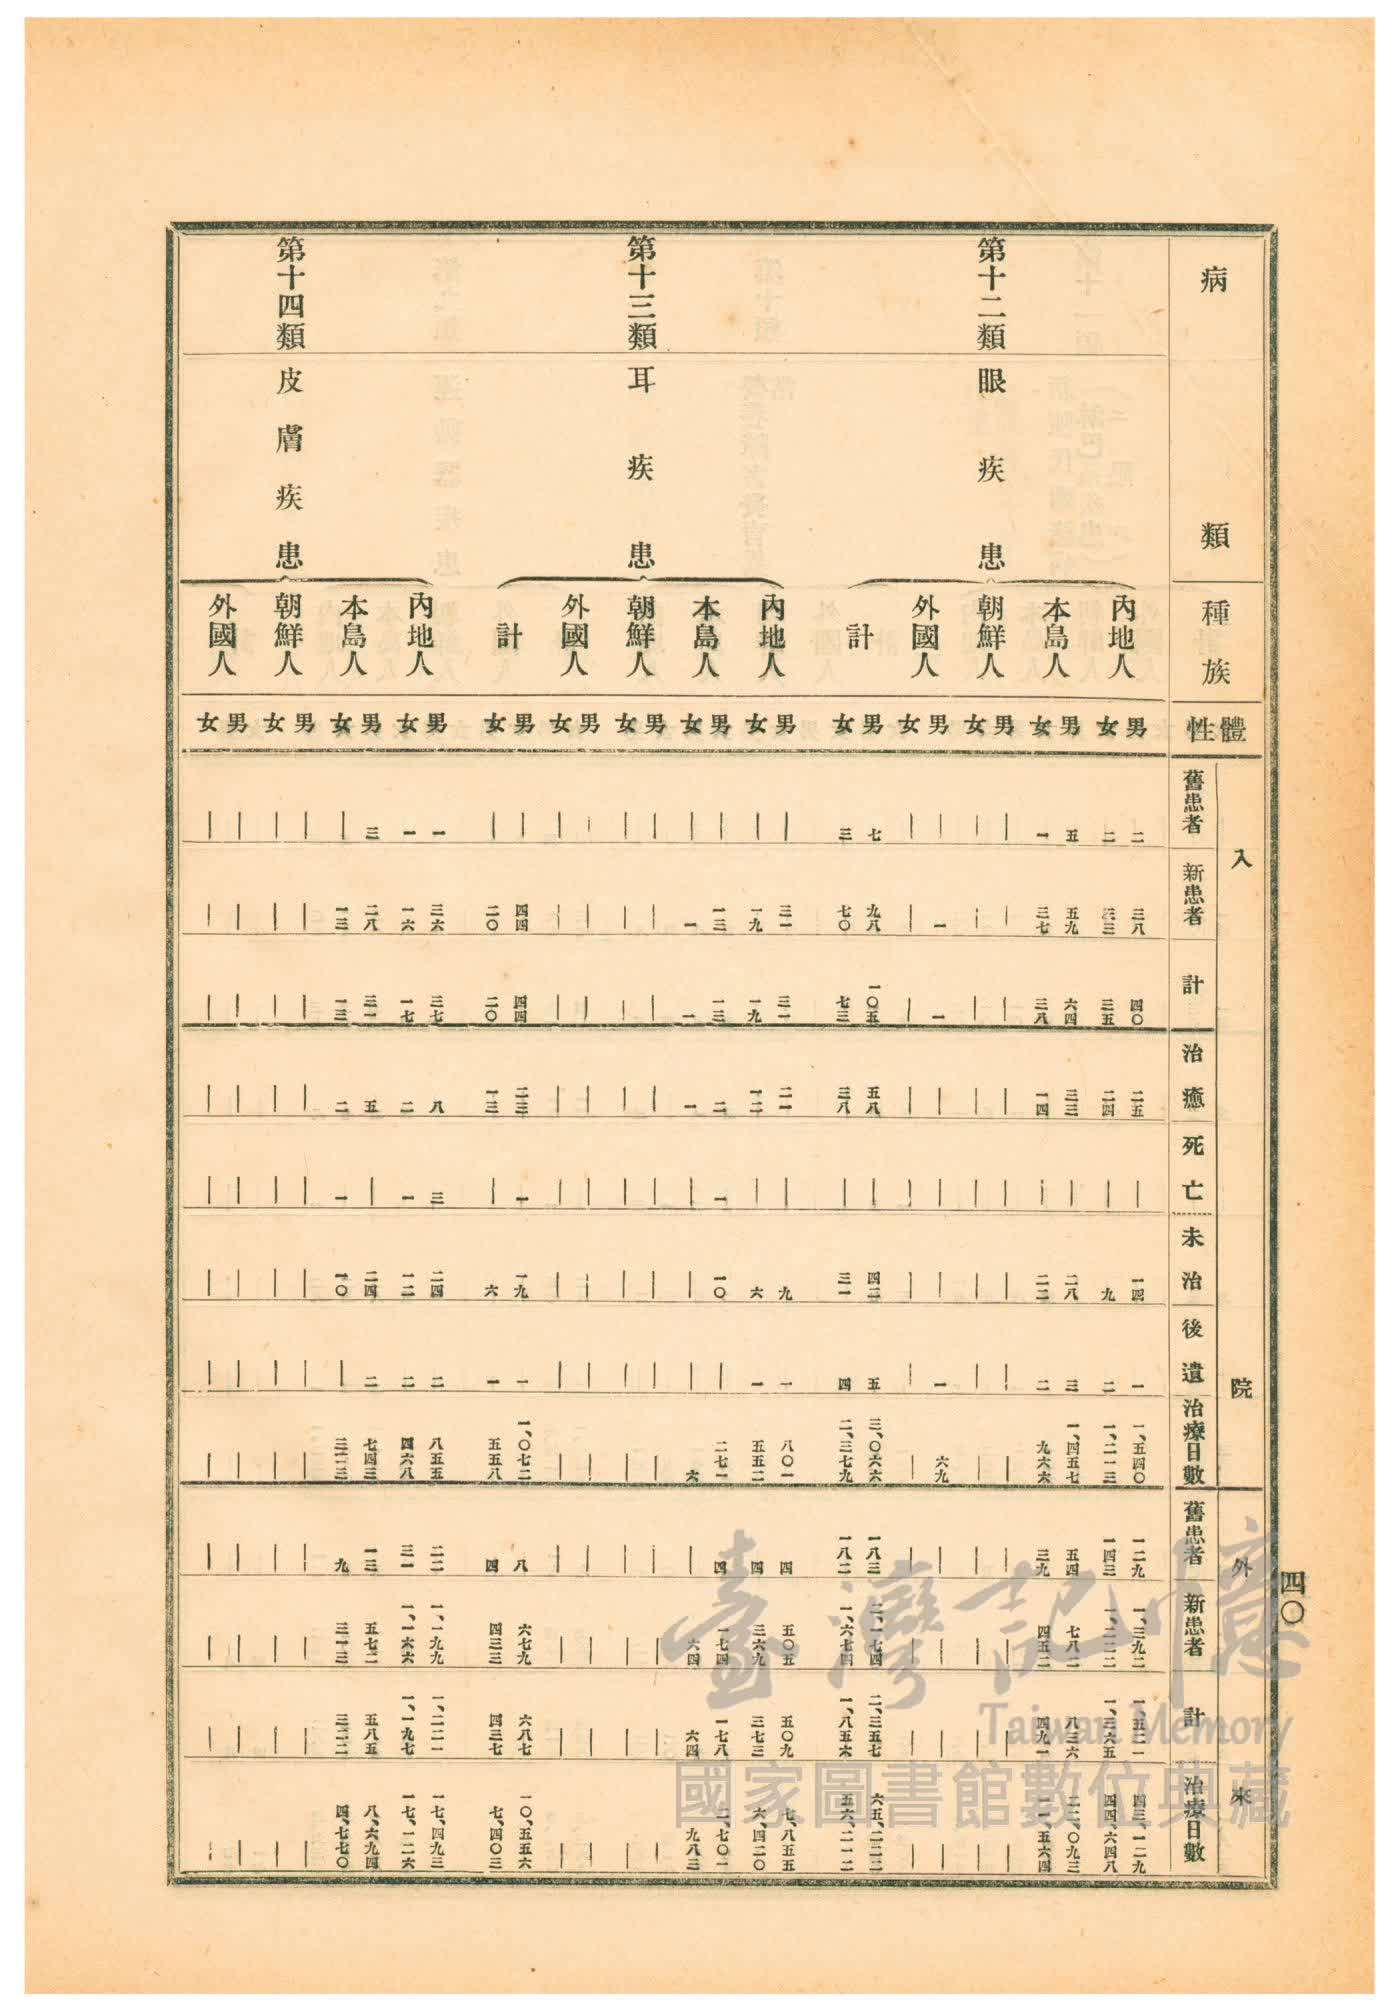 四〇
病類 種族 體性
入院 舊患者 新患者 計 治癒 死亡 未治 後遺 治療日數
外來 舊患者 新患者 計 治療日數
第十二類 眼疾患
內地人 男 二 三八 四〇 二五 ｜ 一四 一 一、五四〇 一二九 一、三九二 一、五二一 四三、一二九
女 二 三三 三五 二四 ｜ 九 二 一、二一三 一四三 一、二二二 一、三六五 四四、六四八
本島人 男 五 五九 六四 三三 ｜ 二八 三 一、四五七 五四 七八二 八三六 二二、〇九三
女 一 三七 三八 一四 ｜ 二二 二 九六六 三九 四五二 四九一 一一、五六四
朝鮮人 男 ｜ ｜ ｜ ｜ ｜ ｜ ｜ ｜ ｜ ｜ ｜ ｜
女 ｜ ｜ ｜ ｜ ｜ ｜ ｜ ｜ ｜ ｜ ｜ ｜
外國人 男 ｜ 一 一 ｜ ｜ ｜ 一 六九 ｜ ｜ ｜ ｜
女 ｜ ｜ ｜ ｜ ｜ ｜ ｜ ｜ ｜ ｜ ｜ ｜
計 男 七 九八 一〇五 五八 ｜ 四二 五 三、〇六六 一八三 二、一七四 二、三五七 六五、二二二
女 三 七〇 七三 三八 ｜ 三一 四 二、一七九 一八二 一、六七四 一、八五六 五六、二一二
第十三類 耳疾患
內地人 男 ｜ 三一 三一 二一 ｜ 九 一 八〇一 四 五〇五 五〇九 七、八五五
女 ｜ 一九 一九 一二 ｜ 六 一 五五二 四 三六九 三七三 六、四二〇
本島人 男 ｜ 一三 一三 二 一 一〇 ｜ 二七一 四 一七四 一七八 二、七〇一
女 ｜ 一 一 一 ｜ ｜ ｜ 六 ｜ 六四 六四 九八三
朝鮮人 男 ｜ ｜ ｜ ｜ ｜ ｜ ｜ ｜ ｜ ｜ ｜ ｜
女 ｜ ｜ ｜ ｜ ｜ ｜ ｜ ｜ ｜ ｜ ｜ ｜
外國人 男 ｜ ｜ ｜ ｜ ｜ ｜ ｜ ｜ ｜ ｜ ｜ ｜
女 ｜ ｜ ｜ ｜ ｜ ｜ ｜ ｜ ｜ ｜ ｜ ｜
計 男 ｜ 四四 四四 二三 一 一九 一 一、〇七二 八 六七九 六八七 一〇、五五六
女 ｜ 二〇 二〇 一三 ｜ 六 一 五五八 四 四三三 四三七 七、四〇三
第十四類 皮膚疾患
內地人 男 一 三六 三七 八 三 二四 二 八五五 二二 一、一九九 一、二二一 一七、四九三
女 一 一六 一七 二 一 一二 二 四六八 三一 一、一六六 一、一九七 一七、一二六
本島人 男 三 二八 三一 五 ｜ 二四 二 七四三 一三 五七二 五八五 八、六九四
女 ｜ 一三 一三 二 一 一〇 ｜ 三二三 九 三一三 三二二 四、七七〇
朝鮮人 男 ｜ ｜ ｜ ｜ ｜ ｜ ｜ ｜ ｜ ｜ ｜ ｜
女 ｜ ｜ ｜ ｜ ｜ ｜ ｜ ｜ ｜ ｜ ｜ ｜
外國人 男 ｜ ｜ ｜ ｜ ｜ ｜ ｜ ｜ ｜ ｜ ｜ ｜
女 ｜ ｜ ｜ ｜ ｜ ｜ ｜ ｜ ｜ ｜ ｜ ｜
臺灣記憶
Taiwan Memory
國家圖書館數位典藏